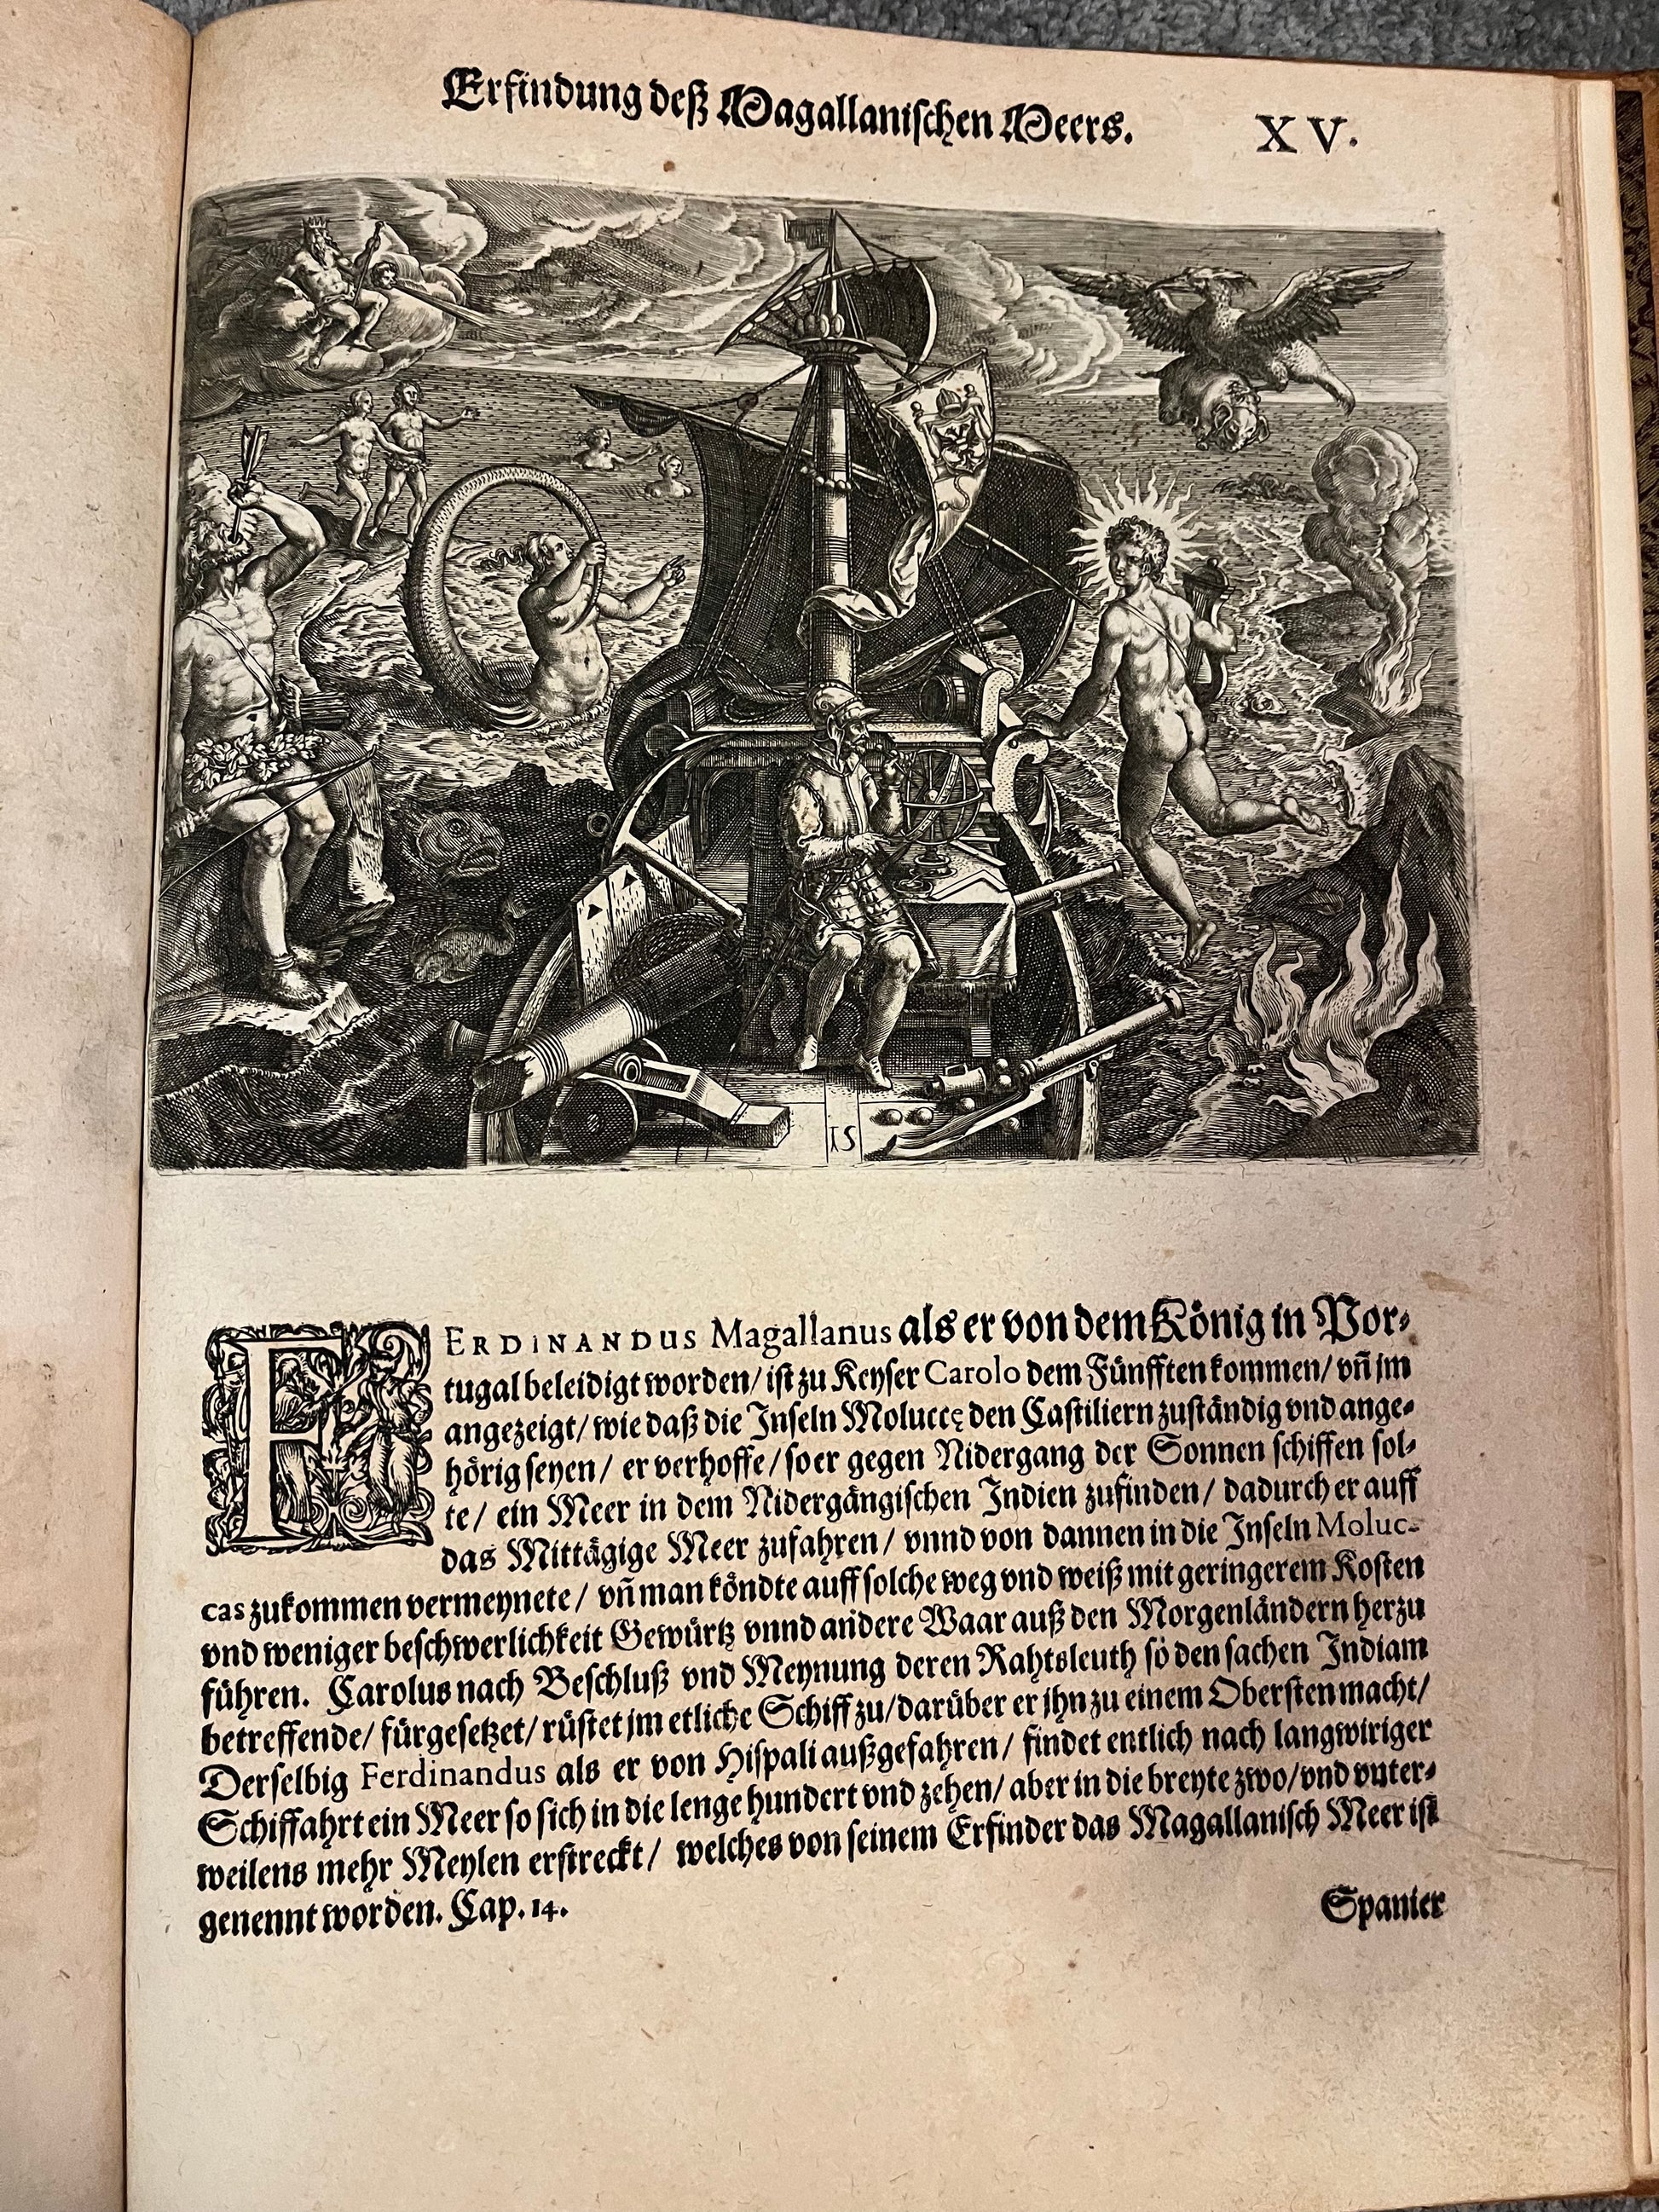 Erfindung deß Magallanischen Meers.
XV.
15
FERDINANDUS Magallanus als er von dem König in Por-
tugal beleidigt worden/ ist zu Keyser Carolo dem Fünfften kommen/ vñ jm
angezeigt/ wie daß die Inseln Moluccę den Castiliern zuständig vnd ange-
hörig seyen/ er verhoffe/ so er gegen Nidergang der Sonnen schiffen sol-
te/ ein Meer in dem Nidergängischen Indien zufinden/ dadurch er auff
das Mittägige Meer zufahren/ vnnd von dannen in die Inseln Moluc-
cas zukommen vermeynete/ vñ man köndte auff solche weg vnd weiß mit geringerem Kosten
vnd weniger beschwerlichkeit Gewürtz vnnd andere Waar auß den Morgenländern herzu
führen. Carolus nach Beschluß vnd Meynung deren Rahtsleuth so den sachen Indiam
betreffende/ fürgesetzet/ rüstet jm etliche Schiff zu/ darüber er jhn zu einem Obersten macht/
Derselbig Ferdinandus als er von Hispali außgefahren/ findet entlich nach langwiriger
Schiffahrt ein Meer so sich in die lenge hundert vnd zehen/ aber in die breyte zwo/ vnd vnter-
weilens mehr Meylen erstreckt/ welches von seinem Erfinder das Magallanisch Meer ist
genennt worden. Cap. 14.
Spanier